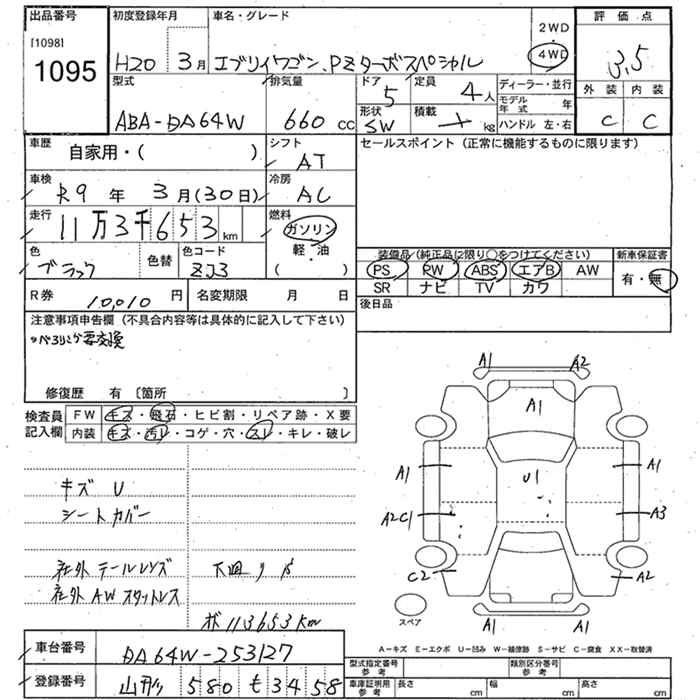 出品番号 初度登録年月 車名・グレード 評価点
[1098] 1095 H20 3月 エブリイワゴン、PZターボスペシャル 2WD・4WD 3.5
型式 排気量 ドア 定員 ディーラー・並行 外装 内装
ABA-DA64W 660cc 5 4人 モデル年式 年 C C
形状 SW 積載 kg ハンドル 左・右
車歴 自家用・( ) シフト AT セールスポイント(正常に機能するものに限ります)
車検 R9年 3月(30日) 冷房 AC
走行 11万3千653km 燃料 ガソリン 軽・油 ( )
色 ブラック 色替 色コード ZJ3
装備品(純正品に限り○をつけてください) 新車保証書
PS PW ABS エアB AW 有・無
SR ナビ TV カワ
R券 10,010円 名変期限 月 日 後日品
注意事項申告欄(不具合内容等は具体的に記入して下さい)
要交換
修復歴 有〔箇所 〕
検査員記入欄 FW キズ・飛石・ヒビ割・リペア跡・X要
内装 キズ・汚レ・コゲ・穴・スレ・キレ・破レ
A1 A2
A1
A1 U1 A1
A2C1 A3
C2 A2
A1 A1
スペア
キズ U
シートカバー
社外テールレンズ 下廻り
社外AWスタッドレス
113653km
A-キズ E-エクボ U-凹み W-補修跡 S-サビ C-腐食 XX-取替済
車台番号 DA64W-253127
登録番号 山形 580 せ 34 58
型式指定番号 参考 類別区分番号 参考
車庫証明用 参考 長さ cm 幅 cm 高さ cm